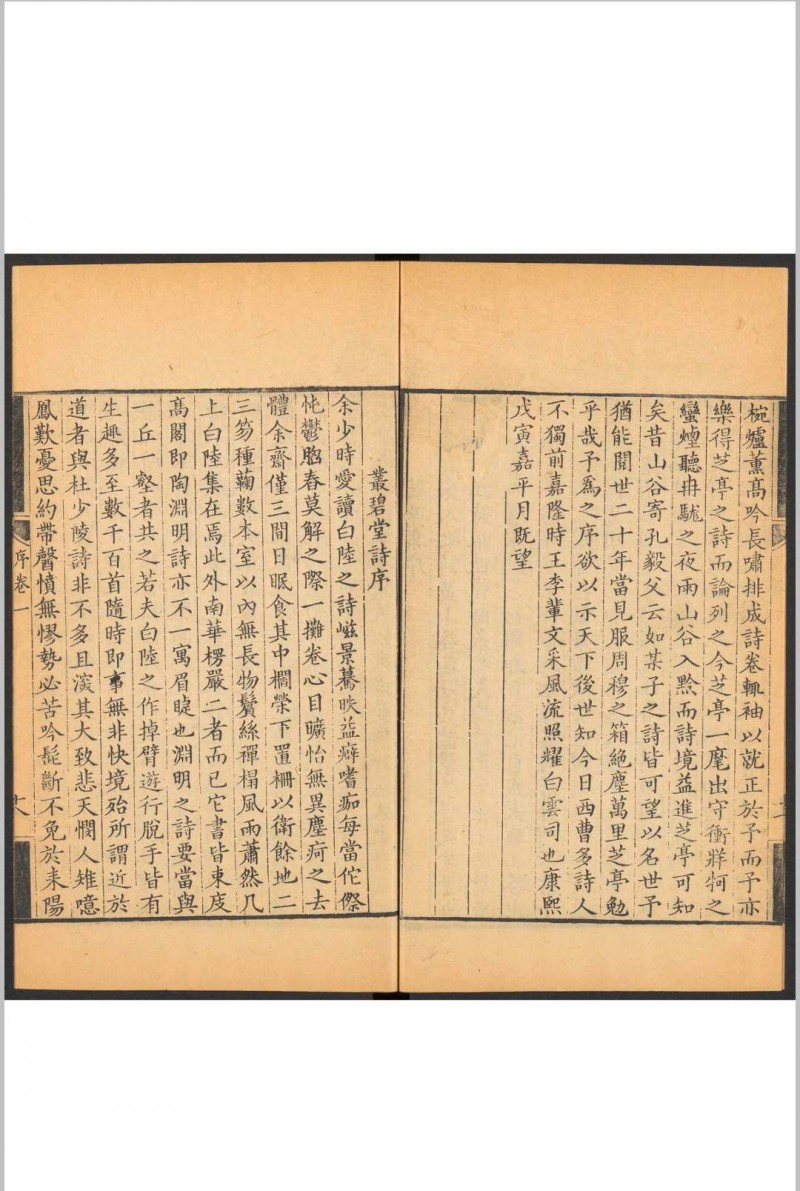 椀爐薰高吟長嘯排成詩卷輒袖以就正於予而予亦
樂得芝亭之詩而論列之今芝亭一麾出守衝牂牁之
蠻煙聽冉駹之夜雨山谷入黔而詩境益進芝亭可知
矣昔山谷寄孔毅父云如某子之詩皆可望以名世予
猶能閱世二十年當見服周穆之箱絶塵萬里芝亭勉
乎哉予爲之序欲以示天下後世知今日西曹多詩人
不獨前嘉隆時王李軰文采風流照耀白雲司也康熙
戊寅嘉平月既望
叢碧堂詩序
余少時愛讀白陸之詩嵫景驀昳益癖嗜痂每當侘傺
忳鬱胞春莫解之際一攤卷心目曠怡無異塵疴之去
體余齋僅三間日眠食其中櫩榮下置柵以衛餘地二
三笏種蘜數本室以內無長物鬢絲禪榻風雨蕭然几
上白陸集在焉此外南華楞嚴二者而已它書皆東庋
高閣即陶淵明詩亦不一寓眉睫也淵明之詩要當與
一丘一壑者共之若夫白陸之作掉臂遊行脫手皆有
生趣多至數千百首隨時即事無非快境殆所謂近於
道者與杜少陵詩非不多且湥其大致悲天憫人雉噫
鳳歎憂思約帶罄憤無憀勢必苦吟髭斷不免於耒陽
序卷一